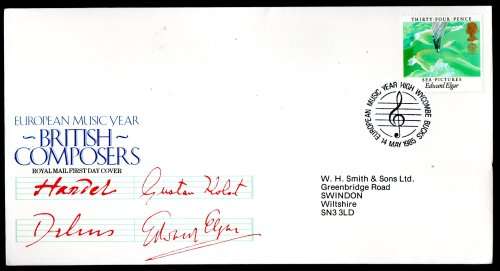 THIRTY-FOUR PENCE
SEA PICTURES
Edward Elgar
EUROPEAN MUSIC YEAR HIGH WYCOMBE BUCKS
14 MAY 1985
EUROPEAN MUSIC YEAR
~BRITISH~
COMPOSERS
ROYAL MAIL FIRST DAY COVER
Handel Gustav Holst
Delius Edward Elgar
W. H. Smith & Sons Ltd.
Greenbridge Road
SWINDON
Wiltshire
SN3 3LD